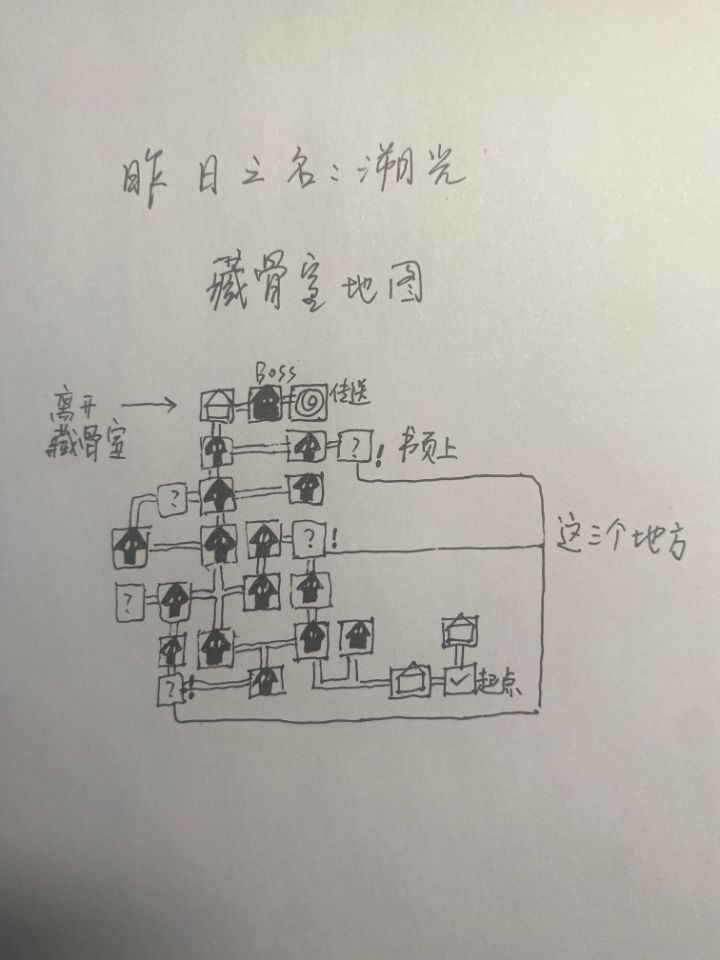 昨日之名:溯光
藏骨室地图
Boss
传送
离开
藏骨室
?
!
书页上
?
?
!
这三个地方
?
?
!
起点